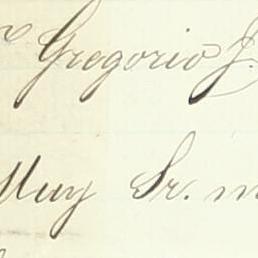 Gregorio J.
Muy Sr. m